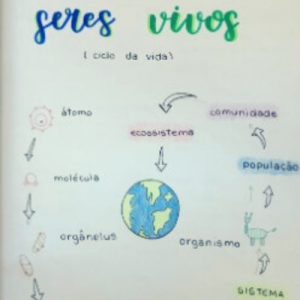 seres vivos
(ciclo da vida)
átomo
molécula
orgânelus
ecossistema
comunidade
população
organismo
SISTEMA